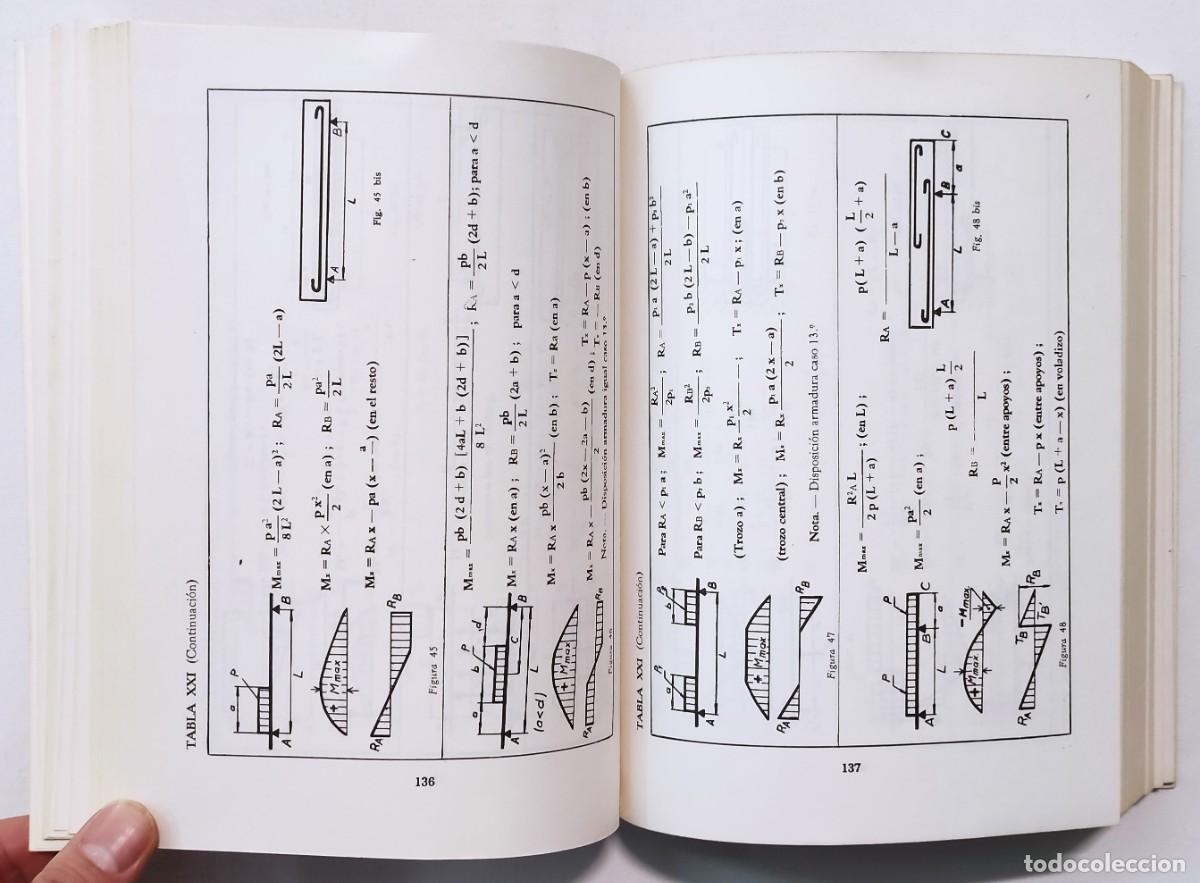 TABLA XXI (Continuación)
P
a
A
B
L
+ Mmax
RA
RB
Figura 45
Mmax = pa²/8L² (2 L — a)² ; RA = pa/2 L (2L — a)
Mx = RA × p x²/2 (en a) ; RB = pa²/2 L
Mx = RA x — pa (x — a/) (en el resto)
A
B
L
Fig. 45 bis
a
b
P
d
C
A
B
L
(a<d)
+ Mmax
RA
RB
Mmax = pb (2 d + b) [4aL + b (2d + b)]/8 L² ; RA = pb/2 L (2d + b); para a < d
Mx = RA x (en a) ; RB = pb/2 L (2a + b) ; para a < d
Mx = RA x pb (x — a)²/2 b (en b) ; Tx = Ra (en a)
Mx = RA x — pb (2x — 2a — b)/2 (en d) ; Tx = RA — p (x — a) ; (en b)
Nota. — Disposición armadura igual caso 13.º Tx = — RB (en d)
136
TABLA XXI (Continuación)
P₁
a
P₁
b
A
B
L
+ Mmax
RA
RB
Figura 47
Para RA < p₁ a ; Mmax = RA²/2p₁ ; RA = p₁ a (2 L — a) + p₁ b²/2 L
Para RB < p₁ b ; Mmax = RB²/2p₁ ; RB = p₁ b (2 L — b) — p₁ a²/2 L
(Trozo a) ; Mx = Rx p₁ x²/2 — ; Tx = RA — p₁ x ; (en a)
(trozo central) ; Mx = Rx p₁ a (2 x — a)/2 ; Tx = RB — p₁ x (en b)
Nota. — Disposición armadura caso 13.º
P
P
A
B
C
L
a
+ Mmax
-Mmax
RA
TB
TB'
RB
Figura 48
Mmax = R²A L/2 p (L + a) ; (en L) ; RA = p(L + a) (L/2 + a)/L — a
Mmax = pa²/2 (en a) ;
RB = p (L + a) L/2/L
Mx = RA x — p/2 x² (entre apoyos) ;
Tx = RA — p x (entre apoyos) ;
Tx = p (L + a — x) (en voladizo)
A
B
C
L
a
Fig. 48 bis
137
todocoleccion